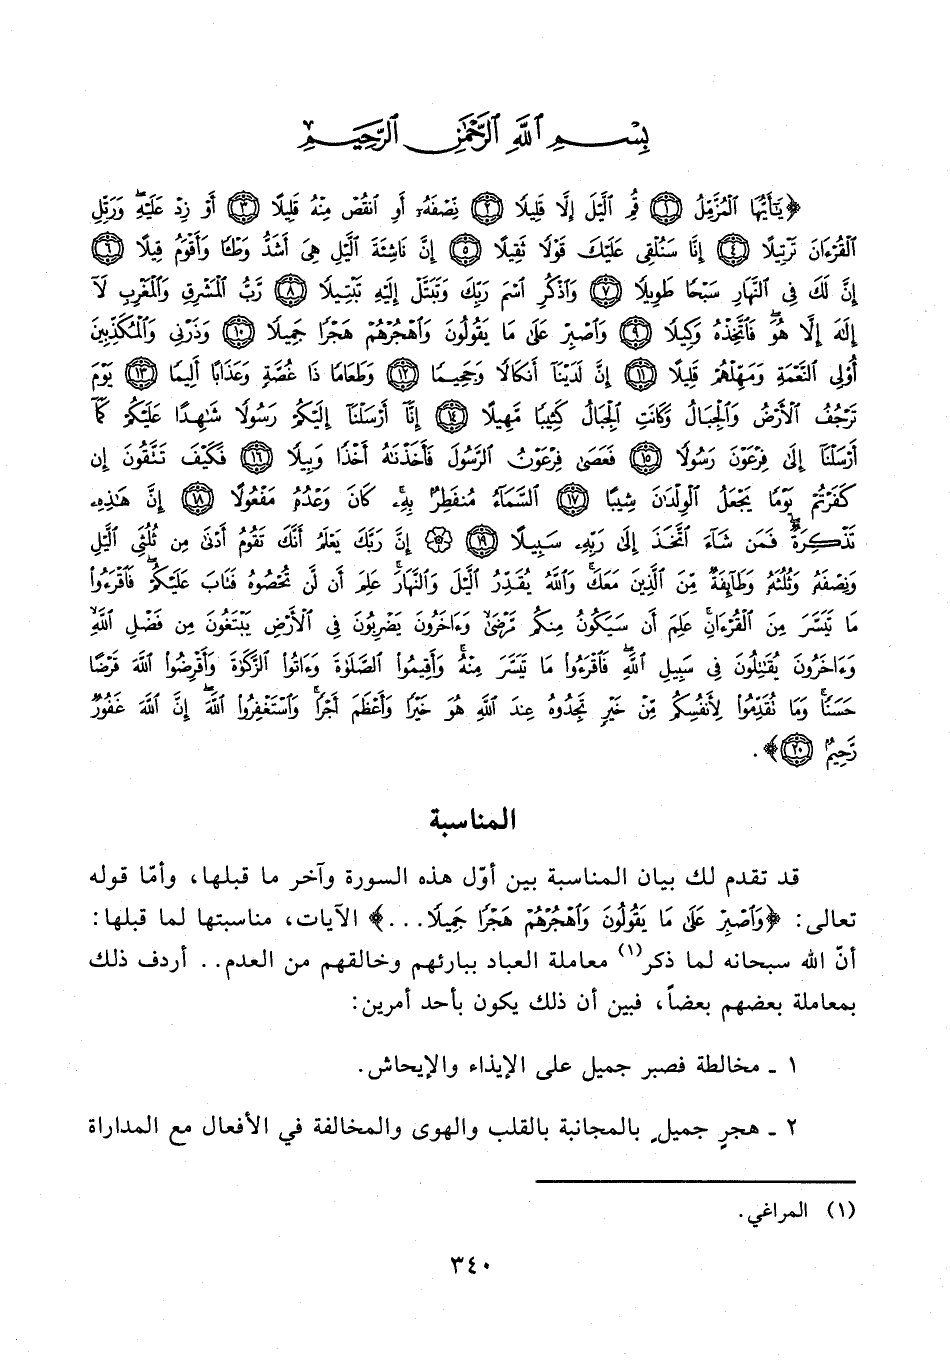 بِسْمِ ٱللَّهِ ٱلرَّحْمَٰنِ ٱلرَّحِيمِ
﴿يَٰٓأَيُّهَا ٱلْمُزَّمِّلُ ١ قُمِ ٱلَّيْلَ إِلَّا قَلِيلًا ٢ نِّصْفَهُۥٓ أَوِ ٱنقُصْ مِنْهُ قَلِيلًا ٣ أَوْ زِدْ عَلَيْهِ وَرَتِّلِ
ٱلْقُرْءَانَ تَرْتِيلًا ٤ إِنَّا سَنُلْقِى عَلَيْكَ قَوْلًا ثَقِيلًا ٥ إِنَّ نَاشِئَةَ ٱلَّيْلِ هِىَ أَشَدُّ وَطْـًٔا وَأَقْوَمُ قِيلًا ٦
إِنَّ لَكَ فِى ٱلنَّهَارِ سَبْحًا طَوِيلًا ٧ وَٱذْكُرِ ٱسْمَ رَبِّكَ وَتَبَتَّلْ إِلَيْهِ تَبْتِيلًا ٨ رَّبُّ ٱلْمَشْرِقِ وَٱلْمَغْرِبِ لَآ
إِلَٰهَ إِلَّا هُوَ فَٱتَّخِذْهُ وَكِيلًا ٩ وَٱصْبِرْ عَلَىٰ مَا يَقُولُونَ وَٱهْجُرْهُمْ هَجْرًا جَمِيلًا ١٠ وَذَرْنِى وَٱلْمُكَذِّبِينَ
أُو۟لِى ٱلنَّعْمَةِ وَمَهِّلْهُمْ قَلِيلًا ١١ إِنَّ لَدَيْنَآ أَنكَالًا وَجَحِيمًا ١٢ وَطَعَامًا ذَا غُصَّةٍ وَعَذَابًا أَلِيمًا ١٣ يَوْمَ
تَرْجُفُ ٱلْأَرْضُ وَٱلْجِبَالُ وَكَانَتِ ٱلْجِبَالُ كَثِيبًا مَّهِيلًا ١٤ إِنَّآ أَرْسَلْنَآ إِلَيْكُمْ رَسُولًا شَٰهِدًا عَلَيْكُمْ كَمَآ
أَرْسَلْنَآ إِلَىٰ فِرْعَوْنَ رَسُولًا ١٥ فَعَصَىٰ فِرْعَوْنُ ٱلرَّسُولَ فَأَخَذْنَٰهُ أَخْذًا وَبِيلًا ١٦ فَكَيْفَ تَتَّقُونَ إِن
كَفَرْتُمْ يَوْمًا يَجْعَلُ ٱلْوِلْدَٰنَ شِيبًا ١٧ ٱلسَّمَآءُ مُنفَطِرٌۢ بِهِۦ كَانَ وَعْدُهُۥ مَفْعُولًا ١٨ إِنَّ هَٰذِهِۦ
تَذْكِرَةٌ فَمَن شَآءَ ٱتَّخَذَ إِلَىٰ رَبِّهِۦ سَبِيلًا ١٩ إِنَّ رَبَّكَ يَعْلَمُ أَنَّكَ تَقُومُ أَدْنَىٰ مِن ثُلُثَىِ ٱلَّيْلِ
وَنِصْفَهُۥ وَثُلُثَهُۥ وَطَآئِفَةٌ مِّنَ ٱلَّذِينَ مَعَكَ وَٱللَّهُ يُقَدِّرُ ٱلَّيْلَ وَٱلنَّهَارَ عَلِمَ أَن لَّن تُحْصُوهُ فَتَابَ عَلَيْكُمْ فَٱقْرَءُوا۟
مَا تَيَسَّرَ مِنَ ٱلْقُرْءَانِ عَلِمَ أَن سَيَكُونُ مِنكُم مَّرْضَىٰ وَءَاخَرُونَ يَضْرِبُونَ فِى ٱلْأَرْضِ يَبْتَغُونَ مِن فَضْلِ ٱللَّهِ
وَءَاخَرُونَ يُقَٰتِلُونَ فِى سَبِيلِ ٱللَّهِ فَٱقْرَءُوا۟ مَا تَيَسَّرَ مِنْهُ وَأَقِيمُوا۟ ٱلصَّلَوٰةَ وَءَاتُوا۟ ٱلزَّكَوٰةَ وَأَقْرِضُوا۟ ٱللَّهَ قَرْضًا
حَسَنًا وَمَا تُقَدِّمُوا۟ لِأَنفُسِكُم مِّنْ خَيْرٍ تَجِدُوهُ عِندَ ٱللَّهِ هُوَ خَيْرًا وَأَعْظَمَ أَجْرًا وَٱسْتَغْفِرُوا۟ ٱللَّهَ إِنَّ ٱللَّهَ غَفُورٌ
رَّحِيمٌۢ ٢٠﴾.
المناسبة
قد تقدم لك بيان المناسبة بين أوّل هذه السورة وآخر ما قبلها، وأمّا قوله
تعالى: ﴿وَٱصْبِرْ عَلَىٰ مَا يَقُولُونَ وَٱهْجُرْهُمْ هَجْرًا جَمِيلًا...﴾ الآيات، مناسبتها لما قبلها:
أنّ الله سبحانه لما ذكر(١) معاملة العباد ببارئهم وخالقهم من العدم.. أردف ذلك
بمعاملة بعضهم بعضاً، فبين أن ذلك يكون بأحد أمرين:
١ ـ مخالطة فصبر جميل على الإيذاء والإيحاش.
٢ ـ هجرٍ جميلٍ بالمجانبة بالقلب والهوى والمخالفة في الأفعال مع المداراة
(١) المراغي.
٣٤٠